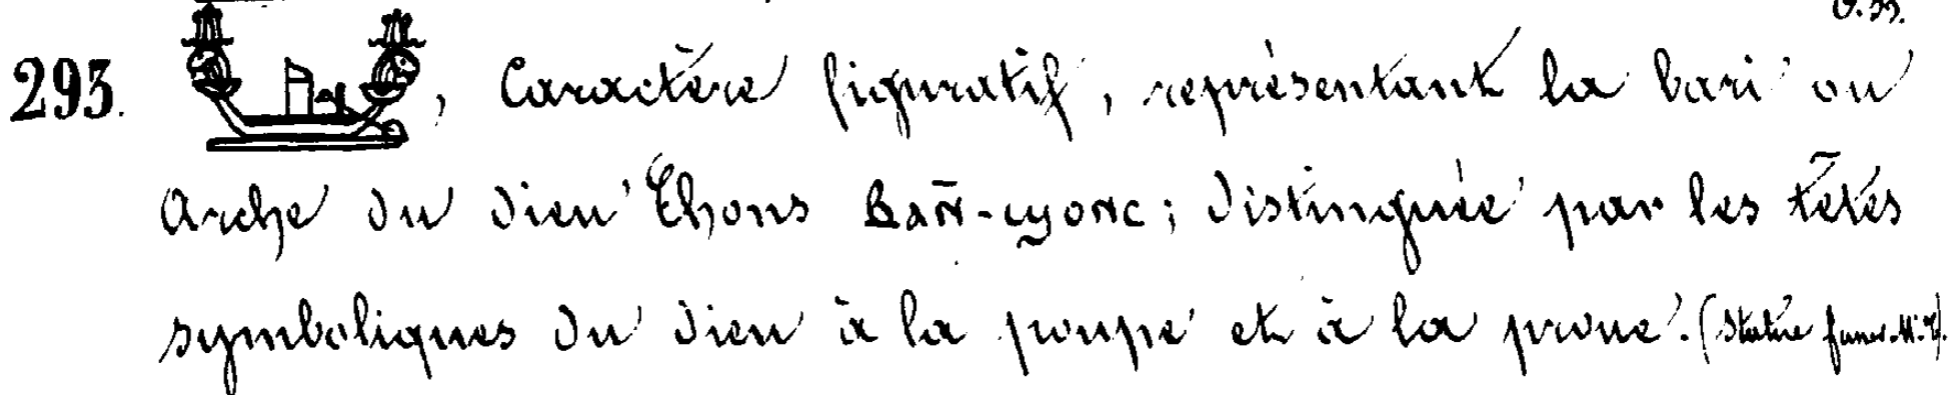 293. , Caractère figuratif, représentant la bari ou
Arche du dieu Chons ; distinguée par les têtes
symboliques du dieu à la poupe et à la proue. (Statue funer.